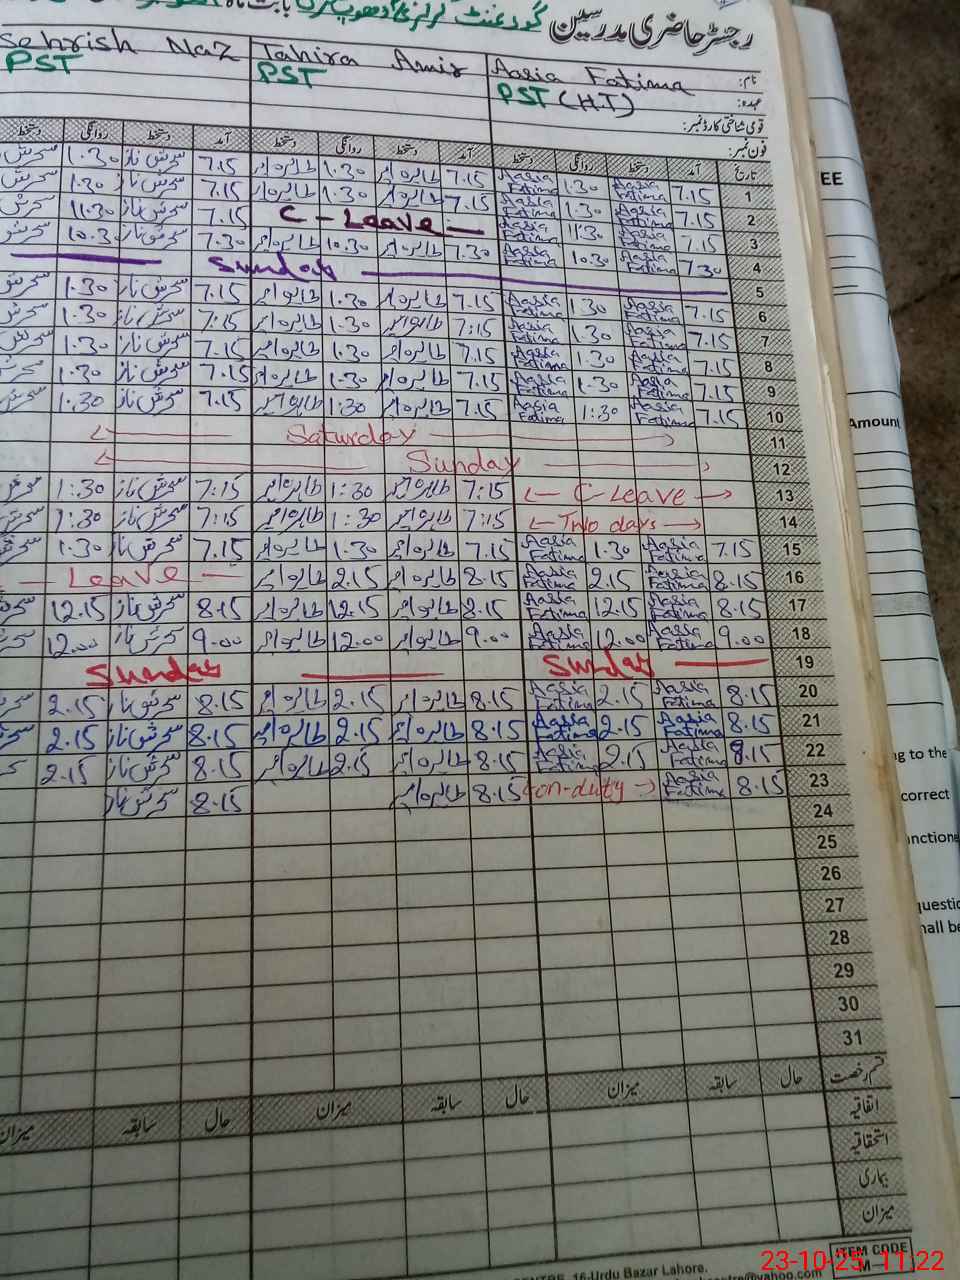 رجسٹر حاضری مدرسین گورنمنٹ گرلز بابت ماہ
نام: Aasia Fatima Tahira Amir Sehrish Naz
عہدہ: PST (H.T) PST PST
قومی شناختی کارڈ نمبر:
فون نمبر:
تاریخ آمد دستخط روانگی دستخط آمد دستخط روانگی دستخط آمد دستخط روانگی دستخط
1 7.15 Aasia Fatima 1.30 Aasia Fatima 7.15 طاہرہ امیر 1.30 طاہرہ امیر 7.15 سحرش ناز 1.30
2 7.15 Aasia Fatima 1.30 Aasia Fatima 7.15 طاہرہ امیر 1.30 طاہرہ امیر 7.15 سحرش ناز 1.30
3 7.15 Aasia Fatima 11.30 Aasia Fatima C-Leave 7.15 سحرش ناز 11.30
4 7.30 Aasia Fatima 10.30 Aasia Fatima 7.30 طاہرہ امیر 10.30 طاہرہ امیر 7.30 سحرش ناز 10.3
5 Sunday
6 7.15 Aasia Fatima 1.30 Aasia Fatima 7.15 طاہرہ امیر 1.30 طاہرہ امیر 7.15 سحرش ناز 1.30
7 7.15 Aasia Fatima 1.30 Aasia Fatima 7:15 طاہرہ امیر 1.30 طاہرہ امیر 7:15 سحرش ناز 1.30
8 7.15 Aasia Fatima 1.30 Aasia Fatima 7.15 طاہرہ امیر 1.30 طاہرہ امیر 7.15 سحرش ناز 1.30
9 7.15 Aasia Fatima 1.30 Aasia Fatima 7.15 طاہرہ امیر 1.30 طاہرہ امیر 7.15 سحرش ناز 1.30
10 7.15 Aasia Fatima 1:30 Aasia Fatima 7.15 طاہرہ امیر 1:30 طاہرہ امیر 7.15 سحرش ناز 1.30
11 Saturday
12 Sunday
13 C-Leave 7:15 طاہرہ امیر 1:30 طاہرہ امیر 7:15 سحرش ناز 1:30
14 Two days 7:15 طاہرہ امیر 1:30 طاہرہ امیر 7:15 سحرش ناز 1:30
15 7.15 Aasia Fatima 1.30 Aasia Fatima 7.15 طاہرہ امیر 1.30 طاہرہ امیر 7.15 سحرش ناز 1.30
16 8.15 Aasia Fatima 2.15 Aasia Fatima 8.15 طاہرہ امیر 2.15 طاہرہ امیر Leave
17 8.15 Aasia Fatima 12.15 Aasia Fatima 8.15 طاہرہ امیر 12.15 طاہرہ امیر 8.15 سحرش ناز 12.15
18 9.00 Aasia Fatima 12.00 Aasia Fatima 9.00 طاہرہ امیر 12.00 طاہرہ امیر 9.00 سحرش ناز 12.00
19 Sunday Sunday
20 8.15 Aasia Fatima 2.15 Aasia Fatima 8.15 طاہرہ امیر 2.15 طاہرہ امیر 8.15 سحرش ناز 2.15
21 8.15 Aasia Fatima 2.15 Aasia Fatima 8.15 طاہرہ امیر 2.15 طاہرہ امیر 8.15 سحرش ناز 2.15
22 8.15 Aasia Fatima 2.15 Aasia Fatima 8.15 طاہرہ امیر 2.15 طاہرہ امیر 8.15 سحرش ناز 2.15
23 8.15 Aasia Fatima on-duty 8.15 طاہرہ امیر 8.15 سحرش ناز
24
25
26
27
28
29
30
31
قسم رخصت حال سابقہ میزان حال سابقہ میزان حال سابقہ میزان
اتفاقیہ
استحقاقیہ
بیماری
میزان
ITEM CODE
16-Urdu Bazar Lahore.
@yahoo.com
23-10-25 11:22
EE
Amount
ng to the
correct